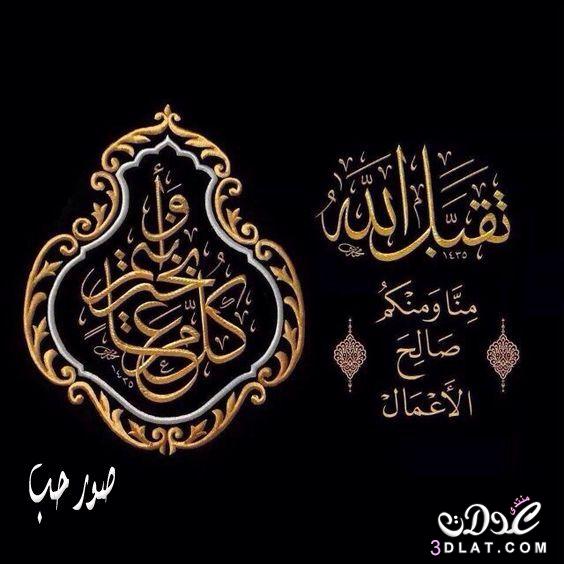 تَقَبَّلَ اللهُ
١٤٣٥
مِنَّا وَمِنْكُم
صَالِحَ
الأَعْمَالْ
كُلُّ عَامٍ وَأَنتُم بِخَيْرٍ
١٤٣٥
صور حب
منتدى
عدلات
3DLAT.COM